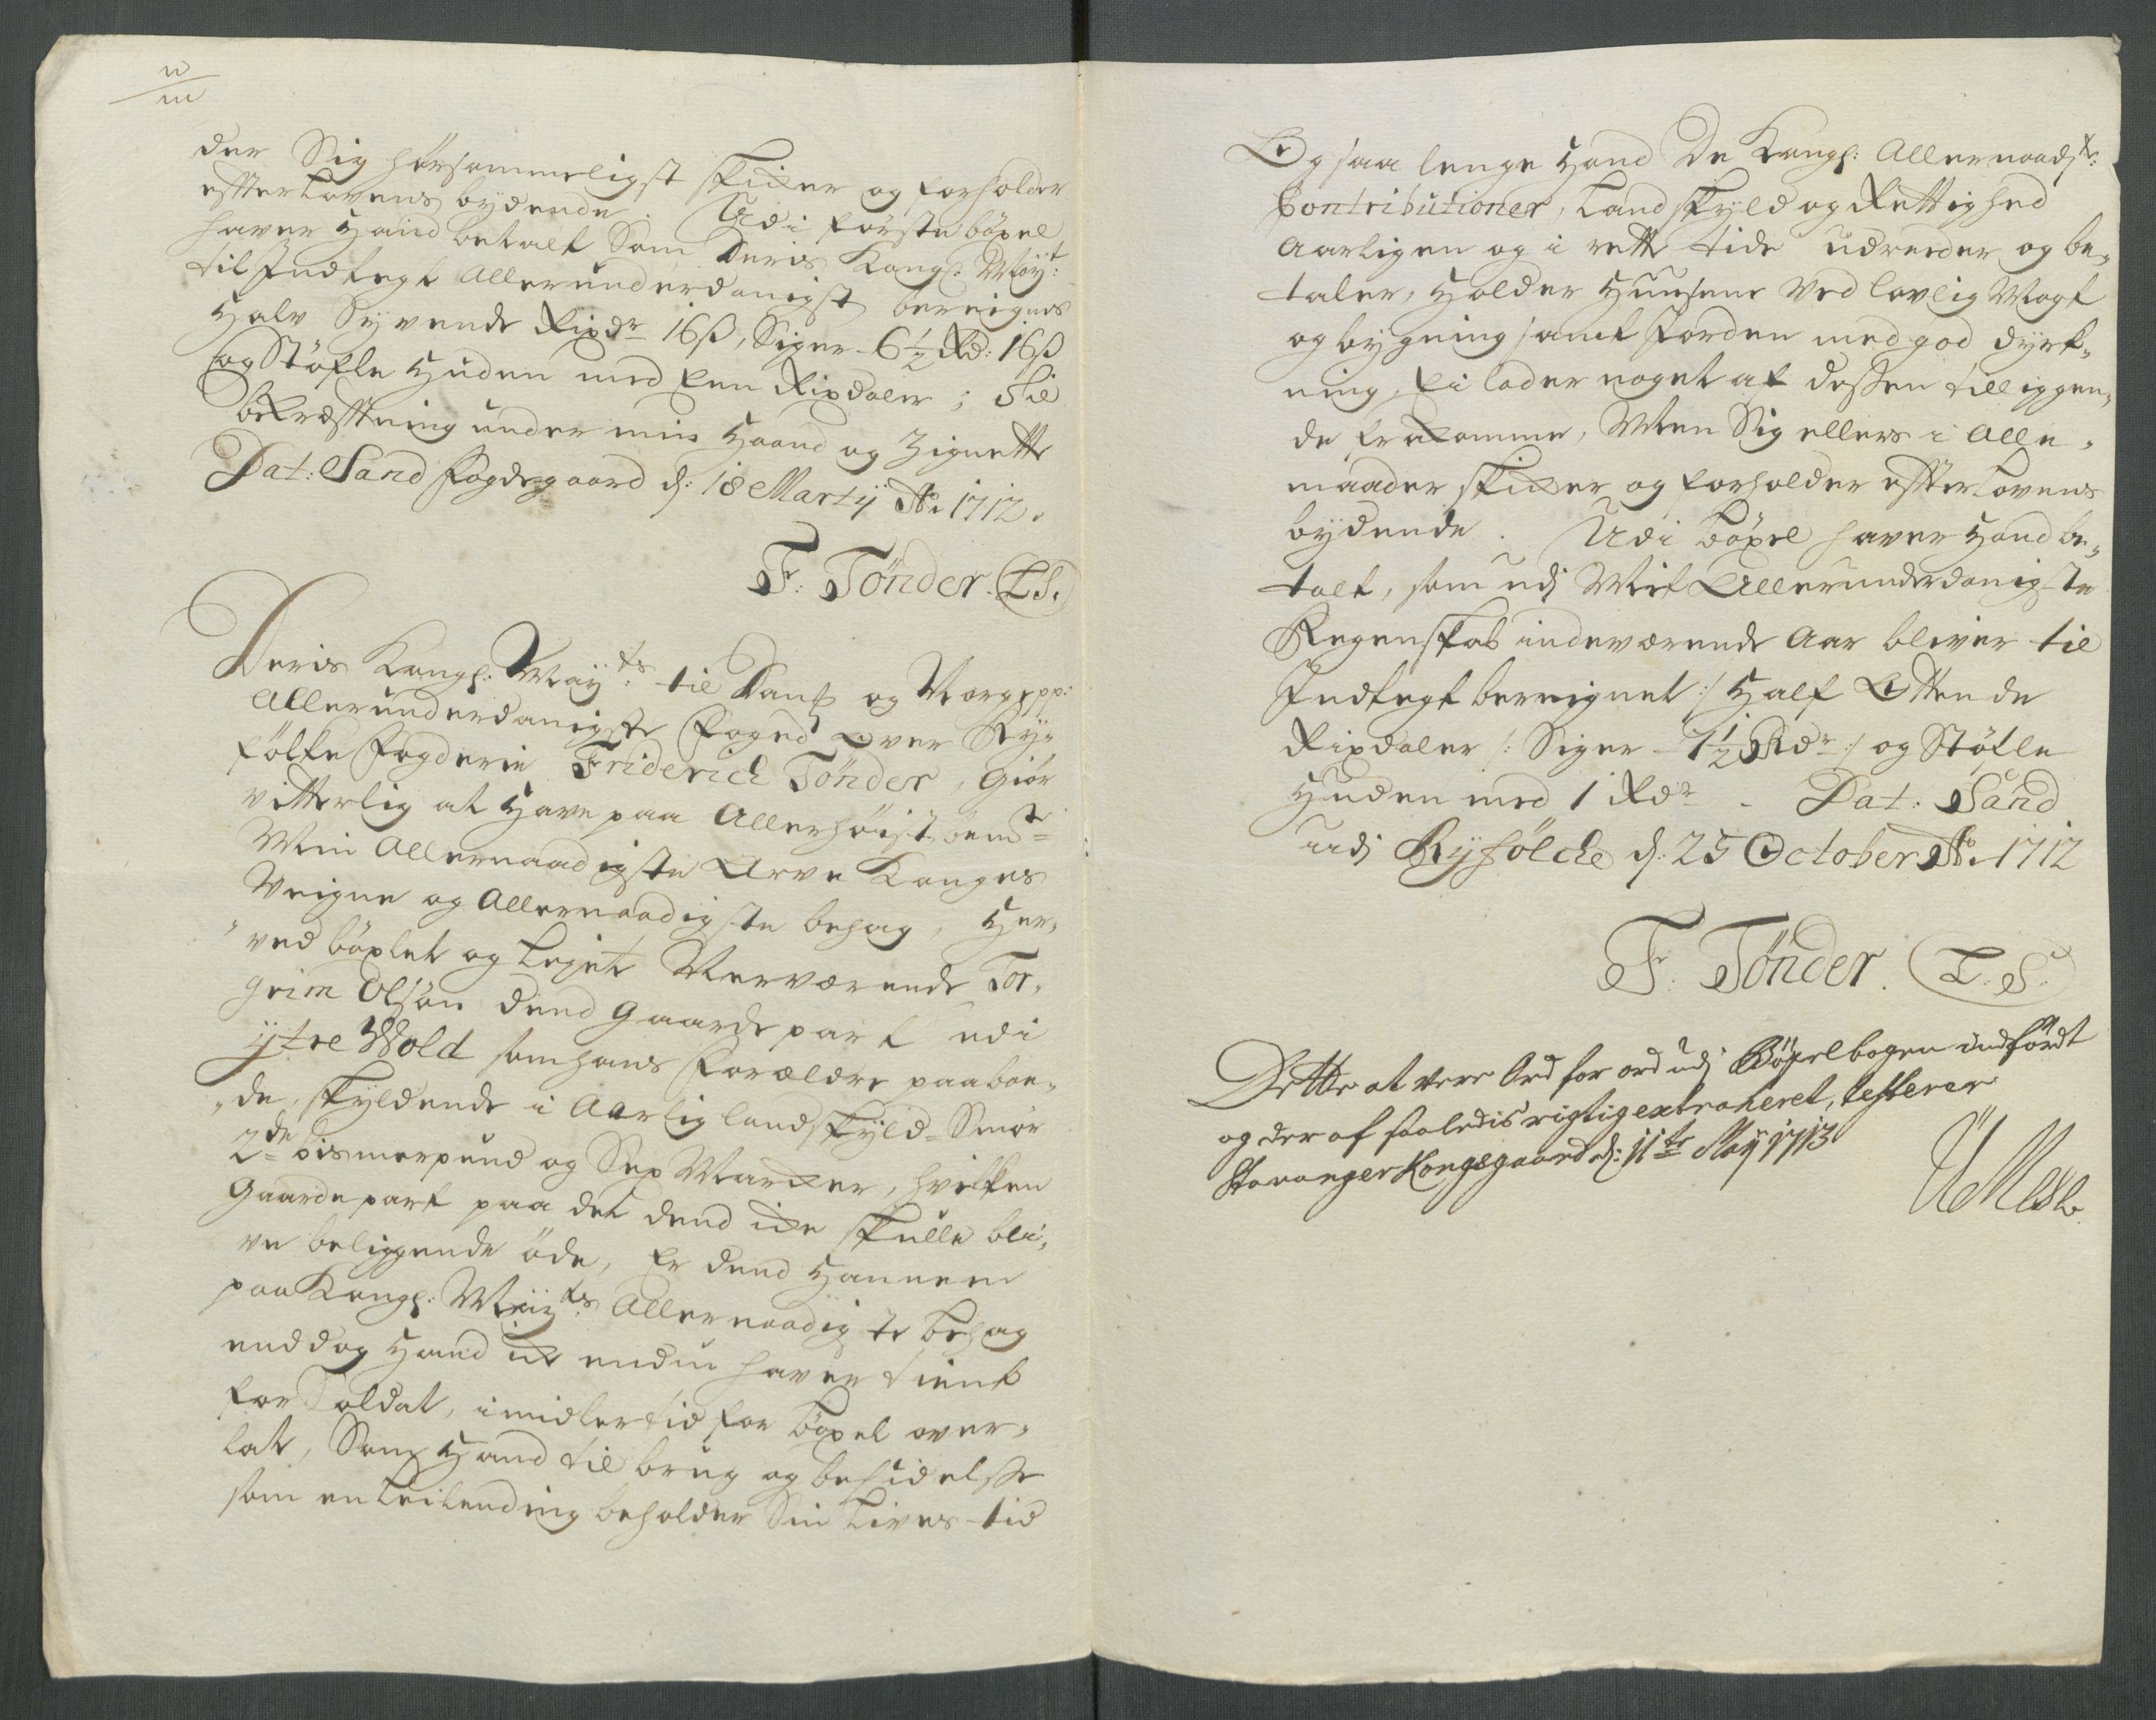 der Sig hørsommeligst skicker og forholder
effter Lovens bydende. Udi første böxel
haver Hand betalt Som Deris Kongl: Maÿt:
til Indtegt Allerunderdanigst bereignes
Halv Syvende Rixdr 16ß, Siger 6½ Rd: 16ß
og Støfle Huden med Een Rixdaler; Til
bekræfftning under min Haand og Zignette
Dat: Sand Fogdegaard d: 18 Martij Ao. 1712.
F: Tönder. (L.S.)
Deris Kongl: Maÿts: til Danm og Norge pp:
Allerunderdanigste Foged Over Ry-
følke Fogderie Friderich Tönder, Giör
vitterlig at Have paa Allerhöist bemte
Min Allernaadigste Arve Konges
Veigne og Allernaadigste behag, Her-
ved böxlet og Lejet Nerværende Tor-
grim Olsön dend Gaarde part udi
ÿtre Wold som hans Forældre paaboe-
de, skyldende i Aarlig landskyld Smör
2de bismerpund og Sex Marcker, hvilken
Gaarde part paa det dend icke skulle bli-
ve beliggende öde, Er dend Hannem
paa Kongl: Maÿts Allernaadigste behag
end dog Hand icke endnu haver tient
for Soldat, imidlertid for böxel over-
lat, Som Hand til brug og besidelsse
som en Leilending beholder Sin Lives-tid
Og saa lenge Hand De Kongl: Allernaadste:
Contributioner, Landskyld og Rettighed
Aarligen og i rette tide udreeder og be-
taler, Holder Huusene Ved lovlig Magt
og bygning samt Jorden med god dyrk-
ning, Ei lader noget af dessen tilliggen-
de frakomme, Men Sig ellers i Alle-
maader skicker og forholder effter Lovens
bydende. Udi Böxel haver Hand be-
talt, som udj Mit Allerunderdanigste
Regenskab indeværende Aar bliver til
Indtegt bereignet :/ Half Ottende
Rixdaler /: Siger 7½ Rdr :/ og Støfle
Huden med 1 Rdr - Dat: Sand
udj Ryfölche d: 25 October Ao. 1712
F: Tönder. (L.S.)
Dette at vere Ord for ord udj Böxelbogen indfördt
og der af saaledis rigtig extraheret, testerer
Stavanger Kongsgaard d: 11te Maÿ 1713